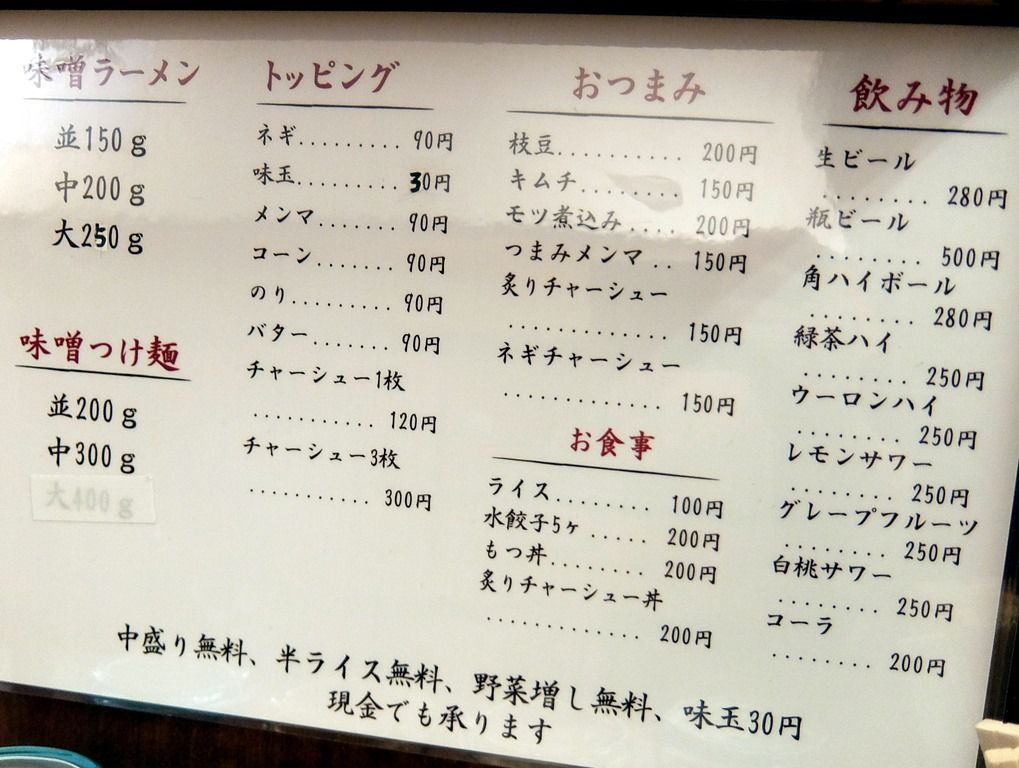 味噌ラーメン
並150g
中200g
大250g
味噌つけ麺
並200g
中300g
大400g
トッピング
ネギ......... 90円
味玉.......... 30円
メンマ........ 90円
コーン........ 90円
のり.......... 90円
バター........ 90円
チャーシュー1枚
............ 120円
チャーシュー3枚
............ 300円
おつまみ
枝豆............ 200円
キムチ......... 150円
モツ煮込み.... 200円
つまみメンマ.. 150円
炙りチャーシュー
............... 150円
ネギチャーシュー
............... 150円
お食事
ライス......... 100円
水餃子5ヶ...... 200円
もつ丼......... 200円
炙りチャーシュー丼
............. 200円
飲み物
生ビール
......... 280円
瓶ビール
......... 500円
角ハイボール
......... 280円
緑茶ハイ
......... 250円
ウーロンハイ
......... 250円
レモンサワー
......... 250円
グレープフルーツ
......... 250円
白桃サワー
......... 250円
コーラ
......... 200円
中盛り無料、半ライス無料、野菜増し無料、味玉30円
現金でも承ります